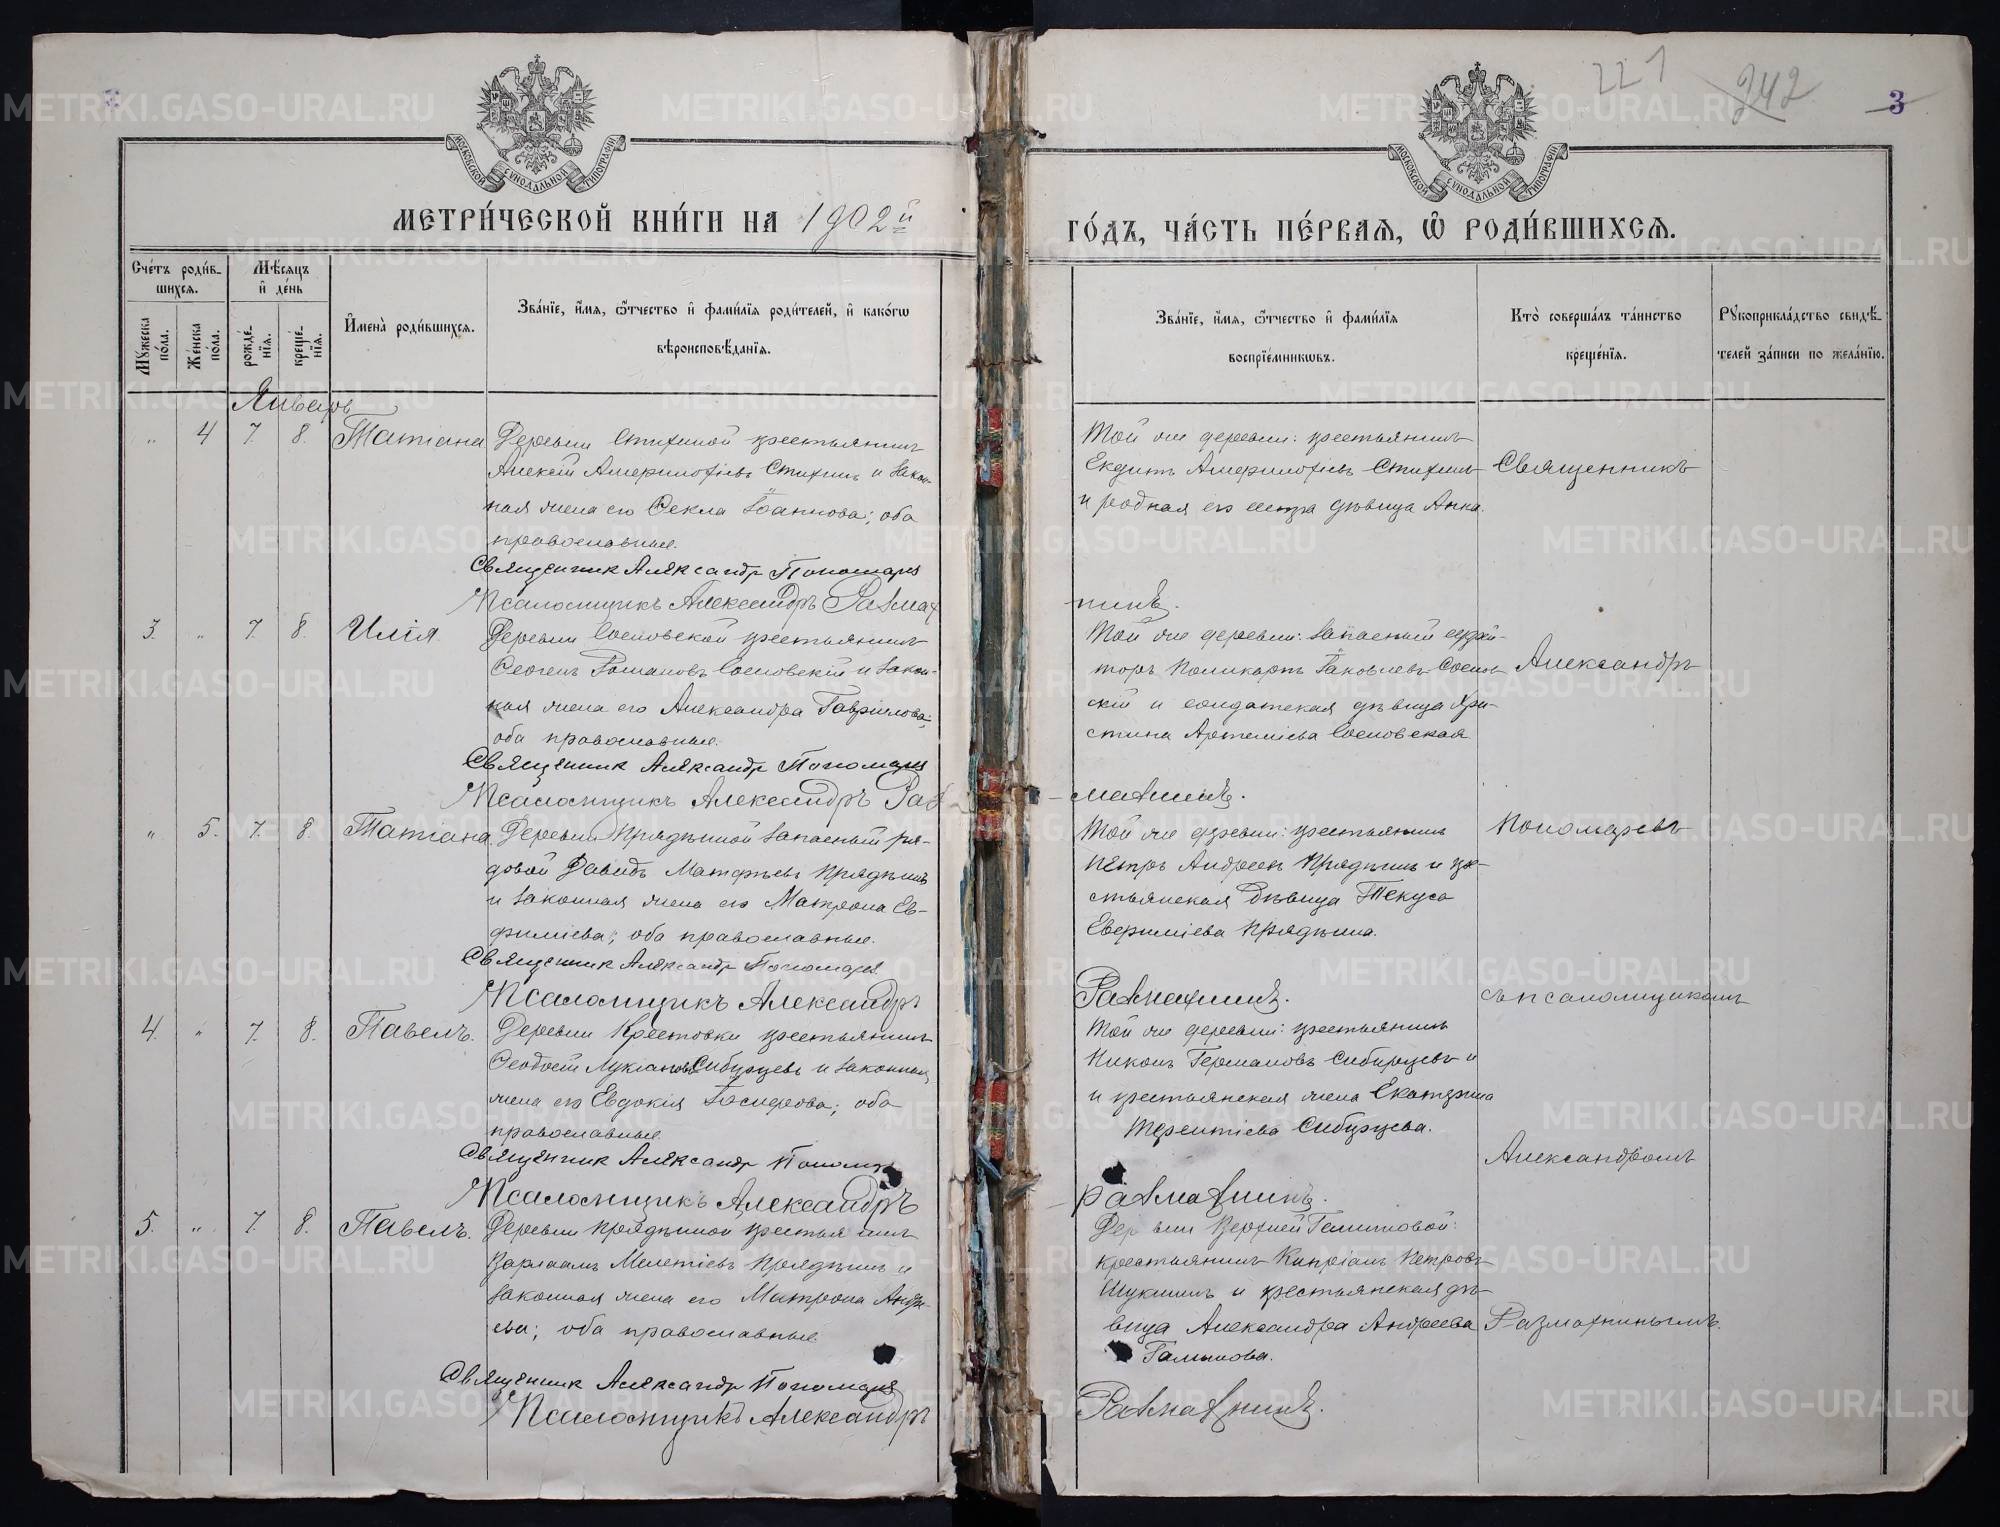 221 242 3
МОСКОВСКОЙ СѴНОДАЛЬНОЙ ТИПОГРАФІИ
МОСКОВСКОЙ СѴНОДАЛЬНОЙ ТИПОГРАФІИ
МЕТРИ́ЧЕСКОЙ КНИ́ГИ НА 1902й
ГО́ДЪ, ЧА́СТЬ ПЕ́РВАѦ, Ѡ҆ РОДИ́ВШИХСѦ.
Сче́тъ роди́в-
шихсѧ.
Мѣ́сѧцъ
и҆ де́нь
Мꙋ́жеска по́ла.
Же́нска по́ла.
рожде́-
нїѧ.
креще́-
нїѧ.
И҆мена̀ роди́вшихсѧ.
Зва́нїе, и҆́мѧ, ѻ҆́тчество и҆ фами́лїѧ роди́телей, и҆ како́гѡ
вѣроисповѣ́данїѧ.
Зва́нїе, и҆́мѧ, ѻ҆́тчество и҆ фами́лїѧ
воспрїе́мникѡвъ.
Кто̀ соверша́лъ та́инство
креще́нїѧ.
Рꙋкоприкла́дство свидѣ́-
телей за́писи по жела́нїю.
Январь
„ 4 7. 8. Татіана
Деревни Стихиной крестьянинъ
Алексій Амфилофіевъ Стихинъ и закон-
ная жена его Ѳекла Іоаннова; оба
православные.
Священник Александр Пономарев
Псаломщикъ Александръ Размах
нинъ.
Той же деревни: крестьянинъ
Амфилофіевъ Стихинъ
и родная его сестра дѣвица Анна.
Священникъ
3. „ 7. 8. Илія.
Деревни Сосновской крестьянинъ
Романовъ Сосновскій и закон-
ная жена его Александра Гаврилова;
оба православные.
Священник Александр Пономарев
Псаломщикъ Александръ Раз
махнинъ.
Той же деревни: запасный ефрей-
торъ Поликарпъ Іаковлевъ Соснов
скій и солдатская дѣвица Хри-
стина Артеміева Сосновская
Александръ
„ 5. 7. 8. Татіана.
Деревни Прядѣиной запасный ря-
довой Давидъ Матфѣевъ Прядѣинъ
и законная жена его Матрона Ев-
фиміева; оба православные.
Священник Александр Пономарев
Псаломщикъ Александръ
Размахнинъ.
Той же деревни: крестьянинъ
Петръ Андреевъ Прядѣинъ и кре-
стьянская дѣвица Текуса
Евфиміева Прядѣина.
Пономаревъ
съ псаломщикомъ
4. „ 7. 8. Павелъ.
Деревни Крестовки крестьянинъ
Ѳеодосій Лукіановъ Сибирцевъ и законная
жена его Евдокія; оба
православные.
Священник Александр Пономар
Псаломщикъ Александръ
Размахнинъ.
Той же деревни: крестьянинъ
Никонъ Германовъ Сибирцевъ и
и крестьянская жена Екатерина
Терентіева Сибирцева.
Александромъ
5. „ 7. 8. Павелъ.
Деревни Прядѣиной крестьянинъ
Варлаамъ Мелетіевъ Прядѣинъ и
законная жена его Матрона Андре-
ева; оба православные.
Священник Александр Пономарев
Псаломщикъ Александръ
Размахнинъ.
Деревни Верхней:
крестьянинъ Кипріанъ Петровъ
Шукшинъ и крестьянская дѣ-
вица Александра Андреева
Галышова.
Размахнинымъ.
METRIKI.GASO-URAL.RU